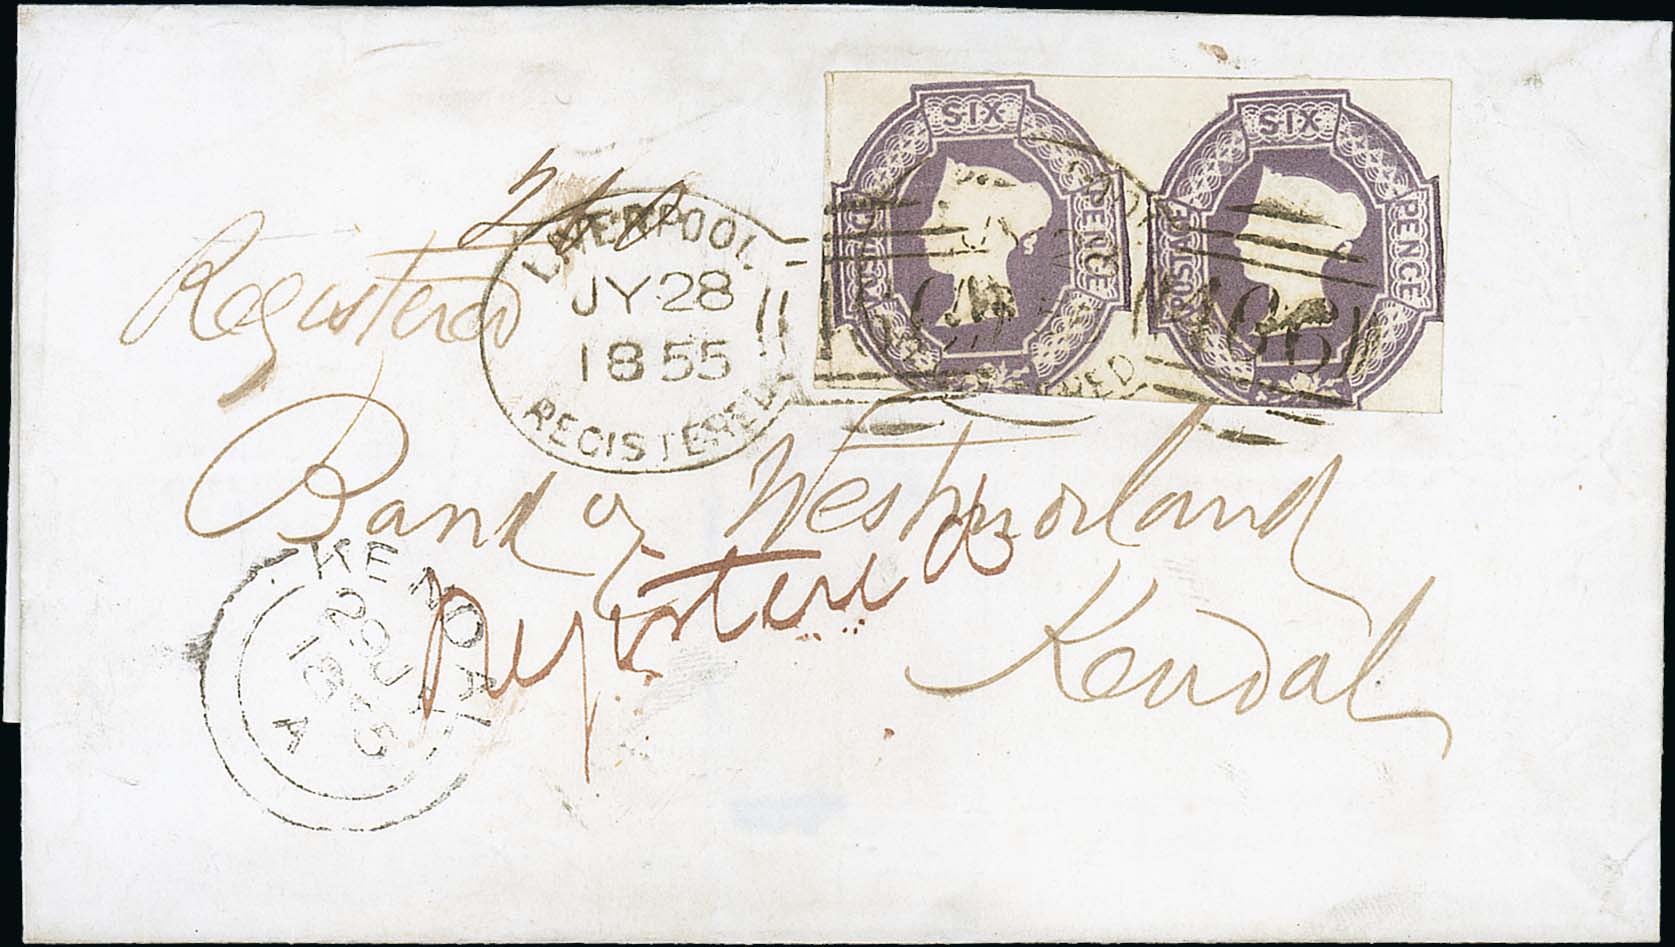 SIX
POSTAGE
PENCE
SIX
POSTAGE
PENCE
466
LIVERPOOL
JY 28
1855
REGISTERED
Registered
Bank of Westmorland
Registered
Kendal
KENDAL
29 JY
1855
A